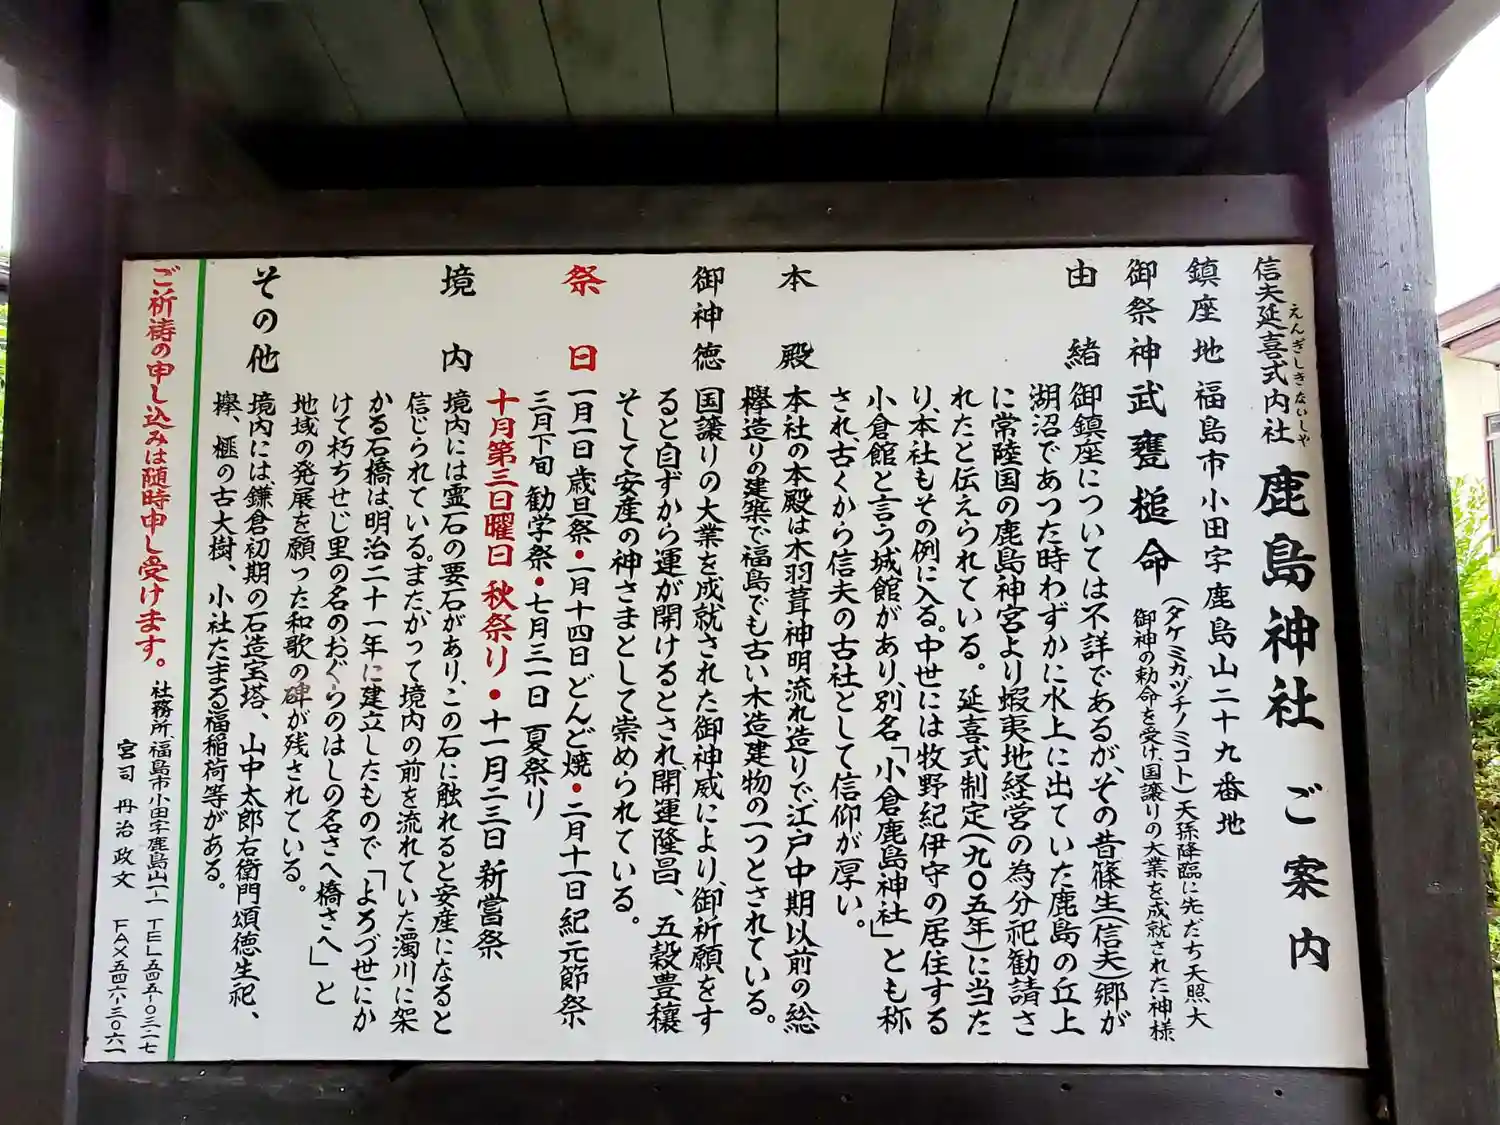 信夫延喜式内社 鹿島神社 ご案内
えんぎしきないしゃ
鎮座地 福島市小田字鹿島山二十九番地
御祭神 武甕槌命 (タケミカヅチノミコト)天孫降臨に先だち天照大
御神の勅命を受け、国譲りの大業を成就された神様
由緒 御鎮座については不詳であるが、その昔篠生(信夫)郷が
湖沼であつた時わずかに水上に出ていた鹿島の丘上
に常陸国の鹿島神宮より蝦夷地経営の為分祀勧請さ
れたと伝えられている。延喜式制定(九〇五年)に当た
り、本社もその例に入る。中世には牧野紀伊守の居住する
小倉館と言う城館があり、別名「小倉鹿島神社」とも称
され、古くから信夫の古社として信仰が厚い。
本殿 本社の本殿は木羽葺神明流れ造りで江戸中期以前の総
欅造りの建築で福島でも古い木造建物の一つとされている。
御神徳 国譲りの大業を成就された御神威により、御祈願をす
ると自ずから運が開けるとされ、開運隆昌、五穀豊穣
そして安産の神さまとして崇められている。
祭日 一月一日歳旦祭・一月十四日どんど焼・二月十一日紀元節祭
三月下旬 勧学祭・七月三一日 夏祭り
十月第三日曜日 秋祭り・十一月二三日 新嘗祭
境内 境内には霊石の要石があり、この石に触れると安産になると
信じられている。また、かつて境内の前を流れていた濁川に架
かる石橋は、明治二十一年に建立したもので「よろづ世にか
けて朽ちせじ里の名のおぐらのはしの名さへ橋さへ」と
地域の発展を願った和歌の碑が残されている。
その他 境内には、鎌倉初期の石造宝塔、山中太郎右衛門頌徳生祀、
欅、榧の古大樹、小社たまる福稲荷等がある。
ご祈祷の申し込みは随時申し受けます。
社務所 福島市小田字鹿島山一ー一 TEL 五四五ー〇三一七
宮司 丹治政文 FAX 五四六ー三〇六一